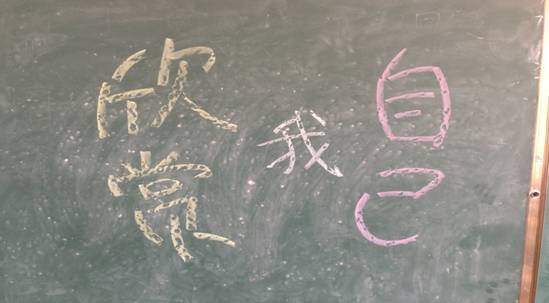 欣赏
我
自己